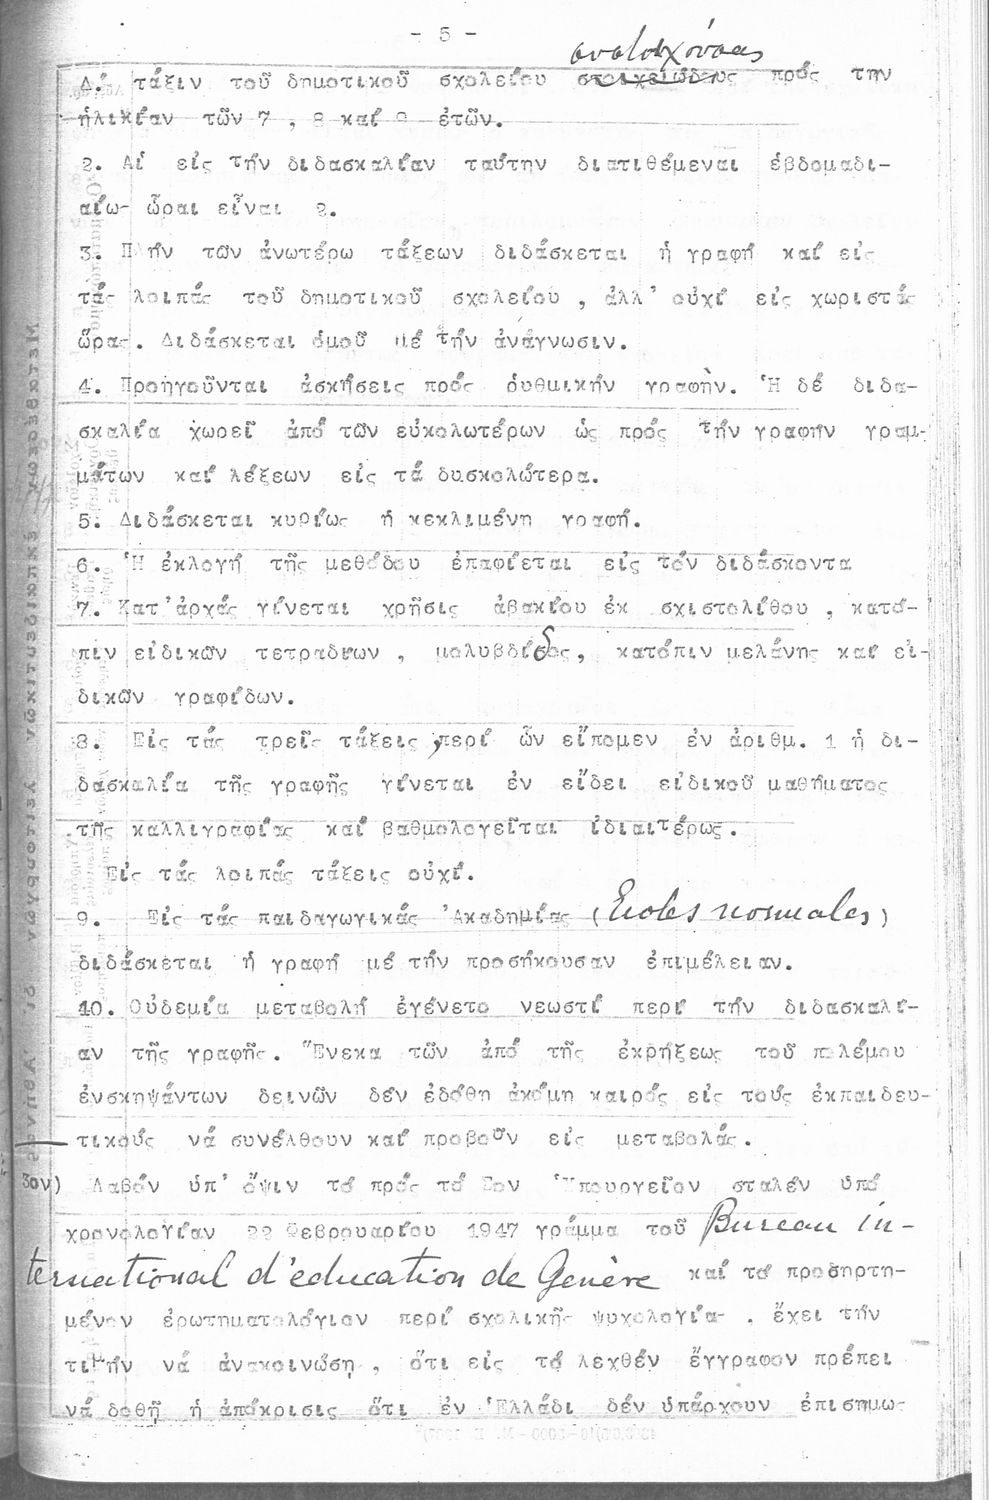 - 5 -
αντιστοιχούσας
Δ΄ τάξιν τοῦ δημοτικοῦ σχολείου στοιχειώδους πρός την
ἡλικίαν τῶν 7 , 8 καί 9 ἐτῶν.
2. Αἱ εἰς τήν διδασκαλίαν ταύτην διατιθέμεναι ἑβδομαδι-
αῖω- ὧραι εἶναι 2.
3. Πλήν τῶν ἀνωτέρω τάξεων διδάσκεται ἡ γραφή καί εἰς
τάς λοιπάς τοῦ δημοτικοῦ σχολείου , ἀλλ' οὐχί εἰς χωριστάς
ὥρας. Διδάσκεται ὁμοῦ μέ τήν ἀνάγνωσιν.
4. Προηγοῦνται ἀσκήσεις πρός ρυθμικήν γραφήν. Ἡ δέ διδα-
σκαλία χωρεῖ ἀπό τῶν εὐκολωτέρων ὡς πρός τήν γραφήν γραμ-
μάτων καί λέξεων εἰς τά δυσκολώτερα.
5. Διδάσκεται κυρίως ἡ κεκλιμένη γραφή.
6. Ἡ ἐκλογή τῆς μεθόδου ἐπαφίεται εἰς τόν διδάσκοντα
7. Κατ'ἀρχάς γίνεται χρῆσις ἀβακίου ἐκ σχιστολίθου , κατό-
πιν εἰδικῶν τετραδίων , μολυβδίδος, κατόπιν μελάνης καί εἰ-
δικῶν γραφίδων.
8. Εἰς τάς τρεῖς τάξεις , περί ὧν εἴπομεν ἐν ἀριθμ. 1 ἡ δι-
δασκαλία τῆς γραφῆς γίνεται ἐν εἴδει εἰδικοῦ μαθήματος
τῆς καλλιγραφίας καί βαθμολογεῖται ἰδιαιτέρως.
Εἰς τάς λοιπάς τάξεις οὐχί.
9. Εἰς τάς παιδαγωγικάς Ἀκαδημίας (Ecoles normales)
διδάσκεται ἡ γραφή μέ τήν προσήκουσαν ἐπιμέλειαν.
10. Οὐδεμία μεταβολή ἐγένετο νεωστί περί τήν διδασκαλί-
αν τῆς γραφῆς. Ἕνεκα τῶν ἀπό τῆς ἐκρήξεως τοῦ πολέμου
ἐνσκηψάντων δεινῶν δέν ἐδόθη ἀκόμη καιρός εἰς τούς ἐκπαιδευ-
τικούς νά συνέλθουν καί προβοῦν εἰς μεταβολάς.
3ον) Λαβόν ὑπ' ὄψιν τό πρός τό Σον Ὑπουργεῖον σταλέν ὑπό
χρονολογίαν 22 Φεβρουαρίου 1947 γράμμα τοῦ Bureau in-
ternational d'education de Genève καί τό προσηρτη-
μένον ἐρωτηματολόγιον περί σχολικῆς ψυχολογίας , ἔχει τήν
τιμήν νά ἀνακοινώσῃ , ὅτι εἰς τό λεχθέν ἔγγραφον πρέπει
νά δοθῇ ἡ ἀπόκρισις ὅτι ἐν Ἑλλάδι δέν ὑπάρχουν ἐπισήμως